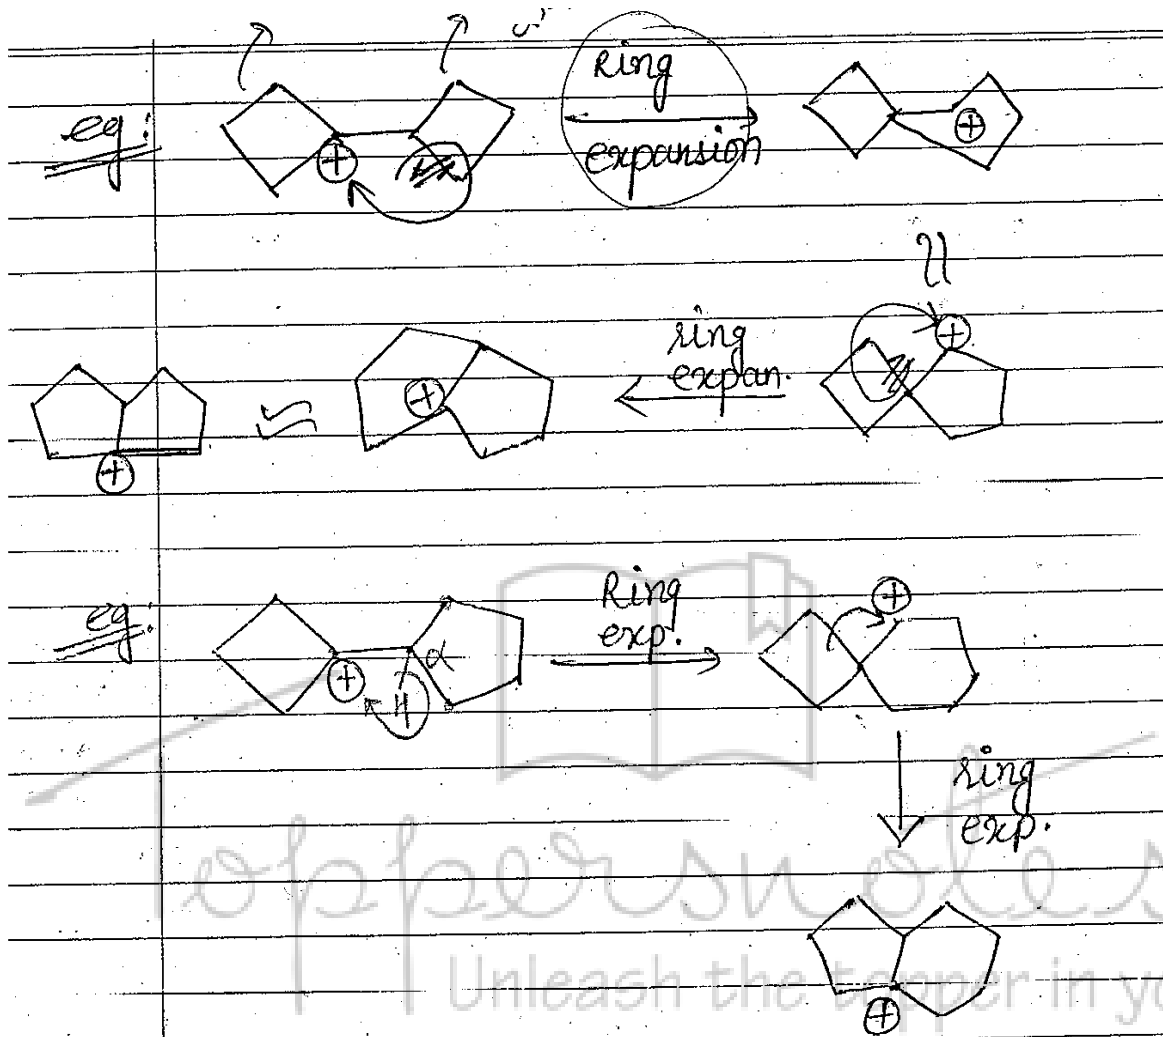 Ring
eg:
⊕
⊕
expansion
ring
expan.
⊕
⊕
⊕
eg:
Ring
exp.
⊕
α
H
⊕
ring
exp.
⊕
Toppersnotes
Unleash the topper in yo